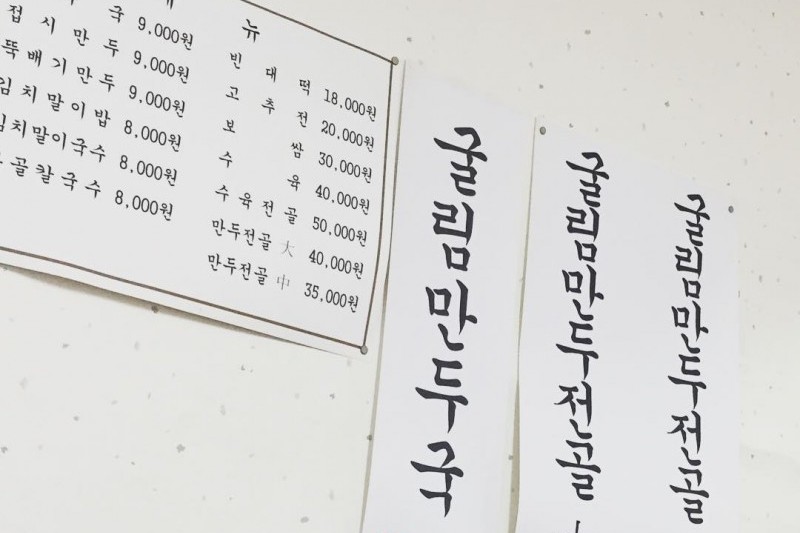 뉴
국 9,000원
접시만두 9,000원
뚝배기만두 9,000원
김치말이밥 8,000원
김치말이국수 8,000원
사골칼국수 8,000원
빈대떡 18,000원
고추전 20,000원
보쌈 30,000원
수육 40,000원
수육전골 50,000원
만두전골 大 40,000원
만두전골 中 35,000원
굴림만두국
굴림만두전골
굴림만두전골